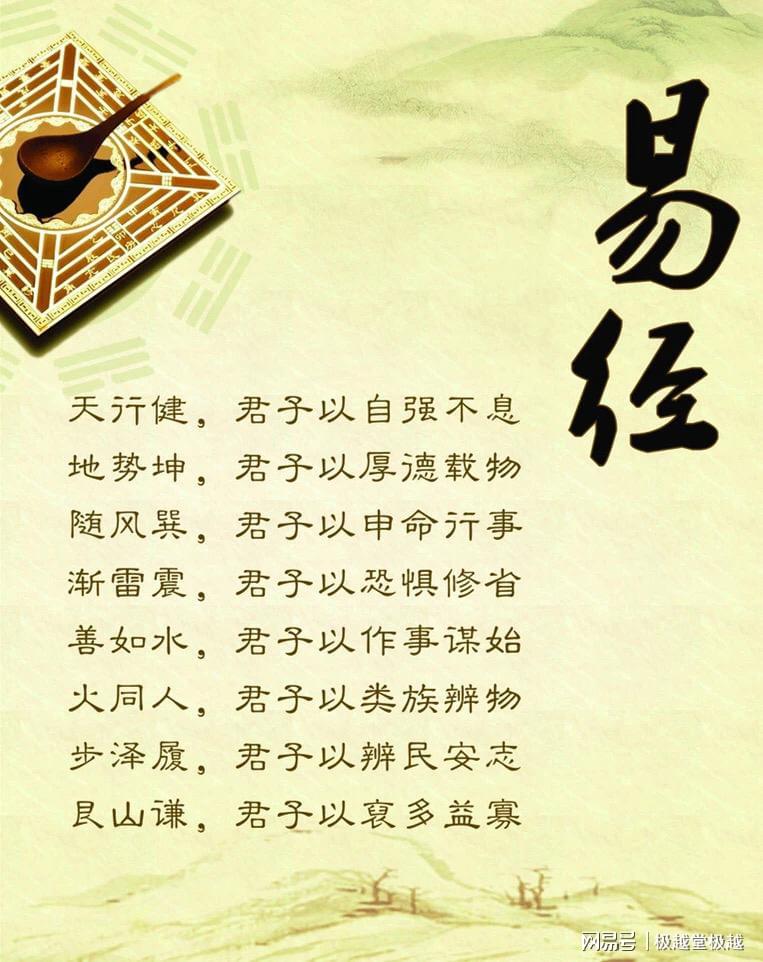 易经
天行健，君子以自强不息
地势坤，君子以厚德载物
随风巽，君子以申命行事
渐雷震，君子以恐惧修省
善如水，君子以作事谋始
火同人，君子以类族辨物
步泽履，君子以辨民安志
艮山谦，君子以裒多益寡
网易号 | 极越堂极越